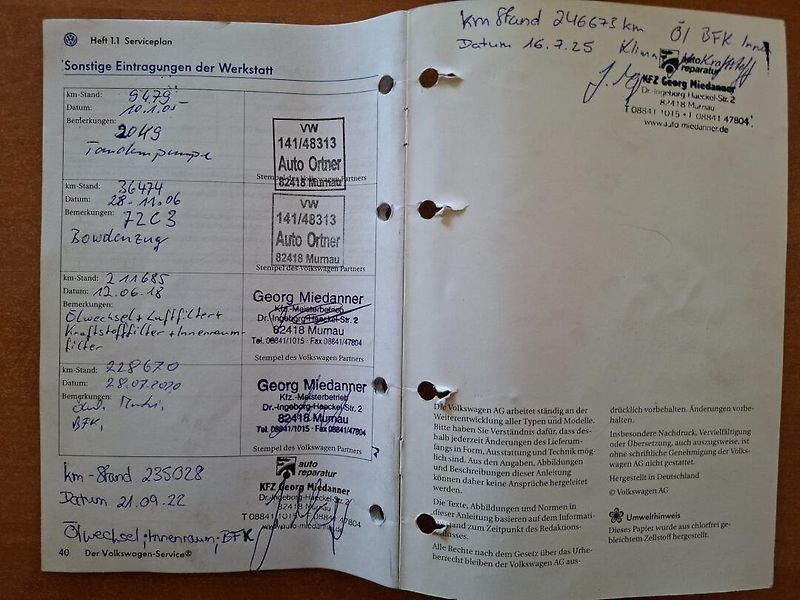 Heft 1.1 Serviceplan
Sonstige Eintragungen der Werkstatt
km-Stand: 9479
Datum: 10.1.05
Bemerkungen:
20K9
Tandempumpe
VW
141/48313
Auto Ortner
82418 Murnau
Stempel des Volkswagen Partners
km-Stand: 36474
Datum: 28.11.06
Bemerkungen: 72C3
Bowdenzug
VW
141/48313
Auto Ortner
82418 Murnau
Stempel des Volkswagen Partners
km-Stand: 211685
Datum: 12.06.18
Bemerkungen:
Ölwechsel + Luftfilter +
Kraftstofffilter + Innenraum-
filter
Georg Miedanner
Kfz.-Meisterbetrieb
Dr.-Ingeborg-Haeckel-Str. 2
82418 Murnau
Tel. 08841/1015 · Fax 08841/47804
Stempel des Volkswagen Partners
km-Stand: 228670
Datum: 28.07.2020
Bemerkungen:
BFK,
Georg Miedanner
Kfz.-Meisterbetrieb
Dr.-Ingeborg-Haeckel-Str. 2
82418 Murnau
Tel. 08841/1015 · Fax 08841/47804
Stempel des Volkswagen Partners
km-Stand 235028
Datum 21.09.22
Ölwechsel, Innenraum, BFK
auto
reparatur
KFZ Georg Miedanner
Dr.-Ingeborg-Haeckel-Str. 2
82418 Murnau
T 08841 1015 · F 08841 47804
www.auto-miedanner.de
40 Der Volkswagen-Service®
km Stand 246673 km Öl BFK Innen
Datum 16.7.25 Klima Kraftstoff
auto
reparatur
KFZ Georg Miedanner
Dr.-Ingeborg-Haeckel-Str. 2
82418 Murnau
T 08841 1015 · F 08841 47804
www.auto-miedanner.de
Die Volkswagen AG arbeitet ständig an der
Weiterentwicklung aller Typen und Modelle.
Bitte haben Sie Verständnis dafür, dass des-
halb jederzeit Änderungen des Lieferum-
fangs in Form, Ausstattung und Technik mög-
lich sind. Aus den Angaben, Abbildungen
und Beschreibungen dieser Anleitung
können daher keine Ansprüche hergeleitet
werden.
Die Texte, Abbildungen und Normen in
dieser Anleitung basieren auf dem Informati-
stand zum Zeitpunkt des Redaktions-
schlusses.
Alle Rechte nach dem Gesetz über das Urhe-
berrecht bleiben der Volkswagen AG aus-
drücklich vorbehalten. Änderungen vorbe-
halten.
Insbesondere Nachdruck, Vervielfältigung
oder Übersetzung, auch auszugsweise, ist
ohne schriftliche Genehmigung der Volkswa-
gen AG nicht gestattet.
Hergestellt in Deutschland
© Volkswagen AG
Umwelthinweis
Dieses Papier wurde aus chlorfrei ge-
bleichtem Zellstoff hergestellt.